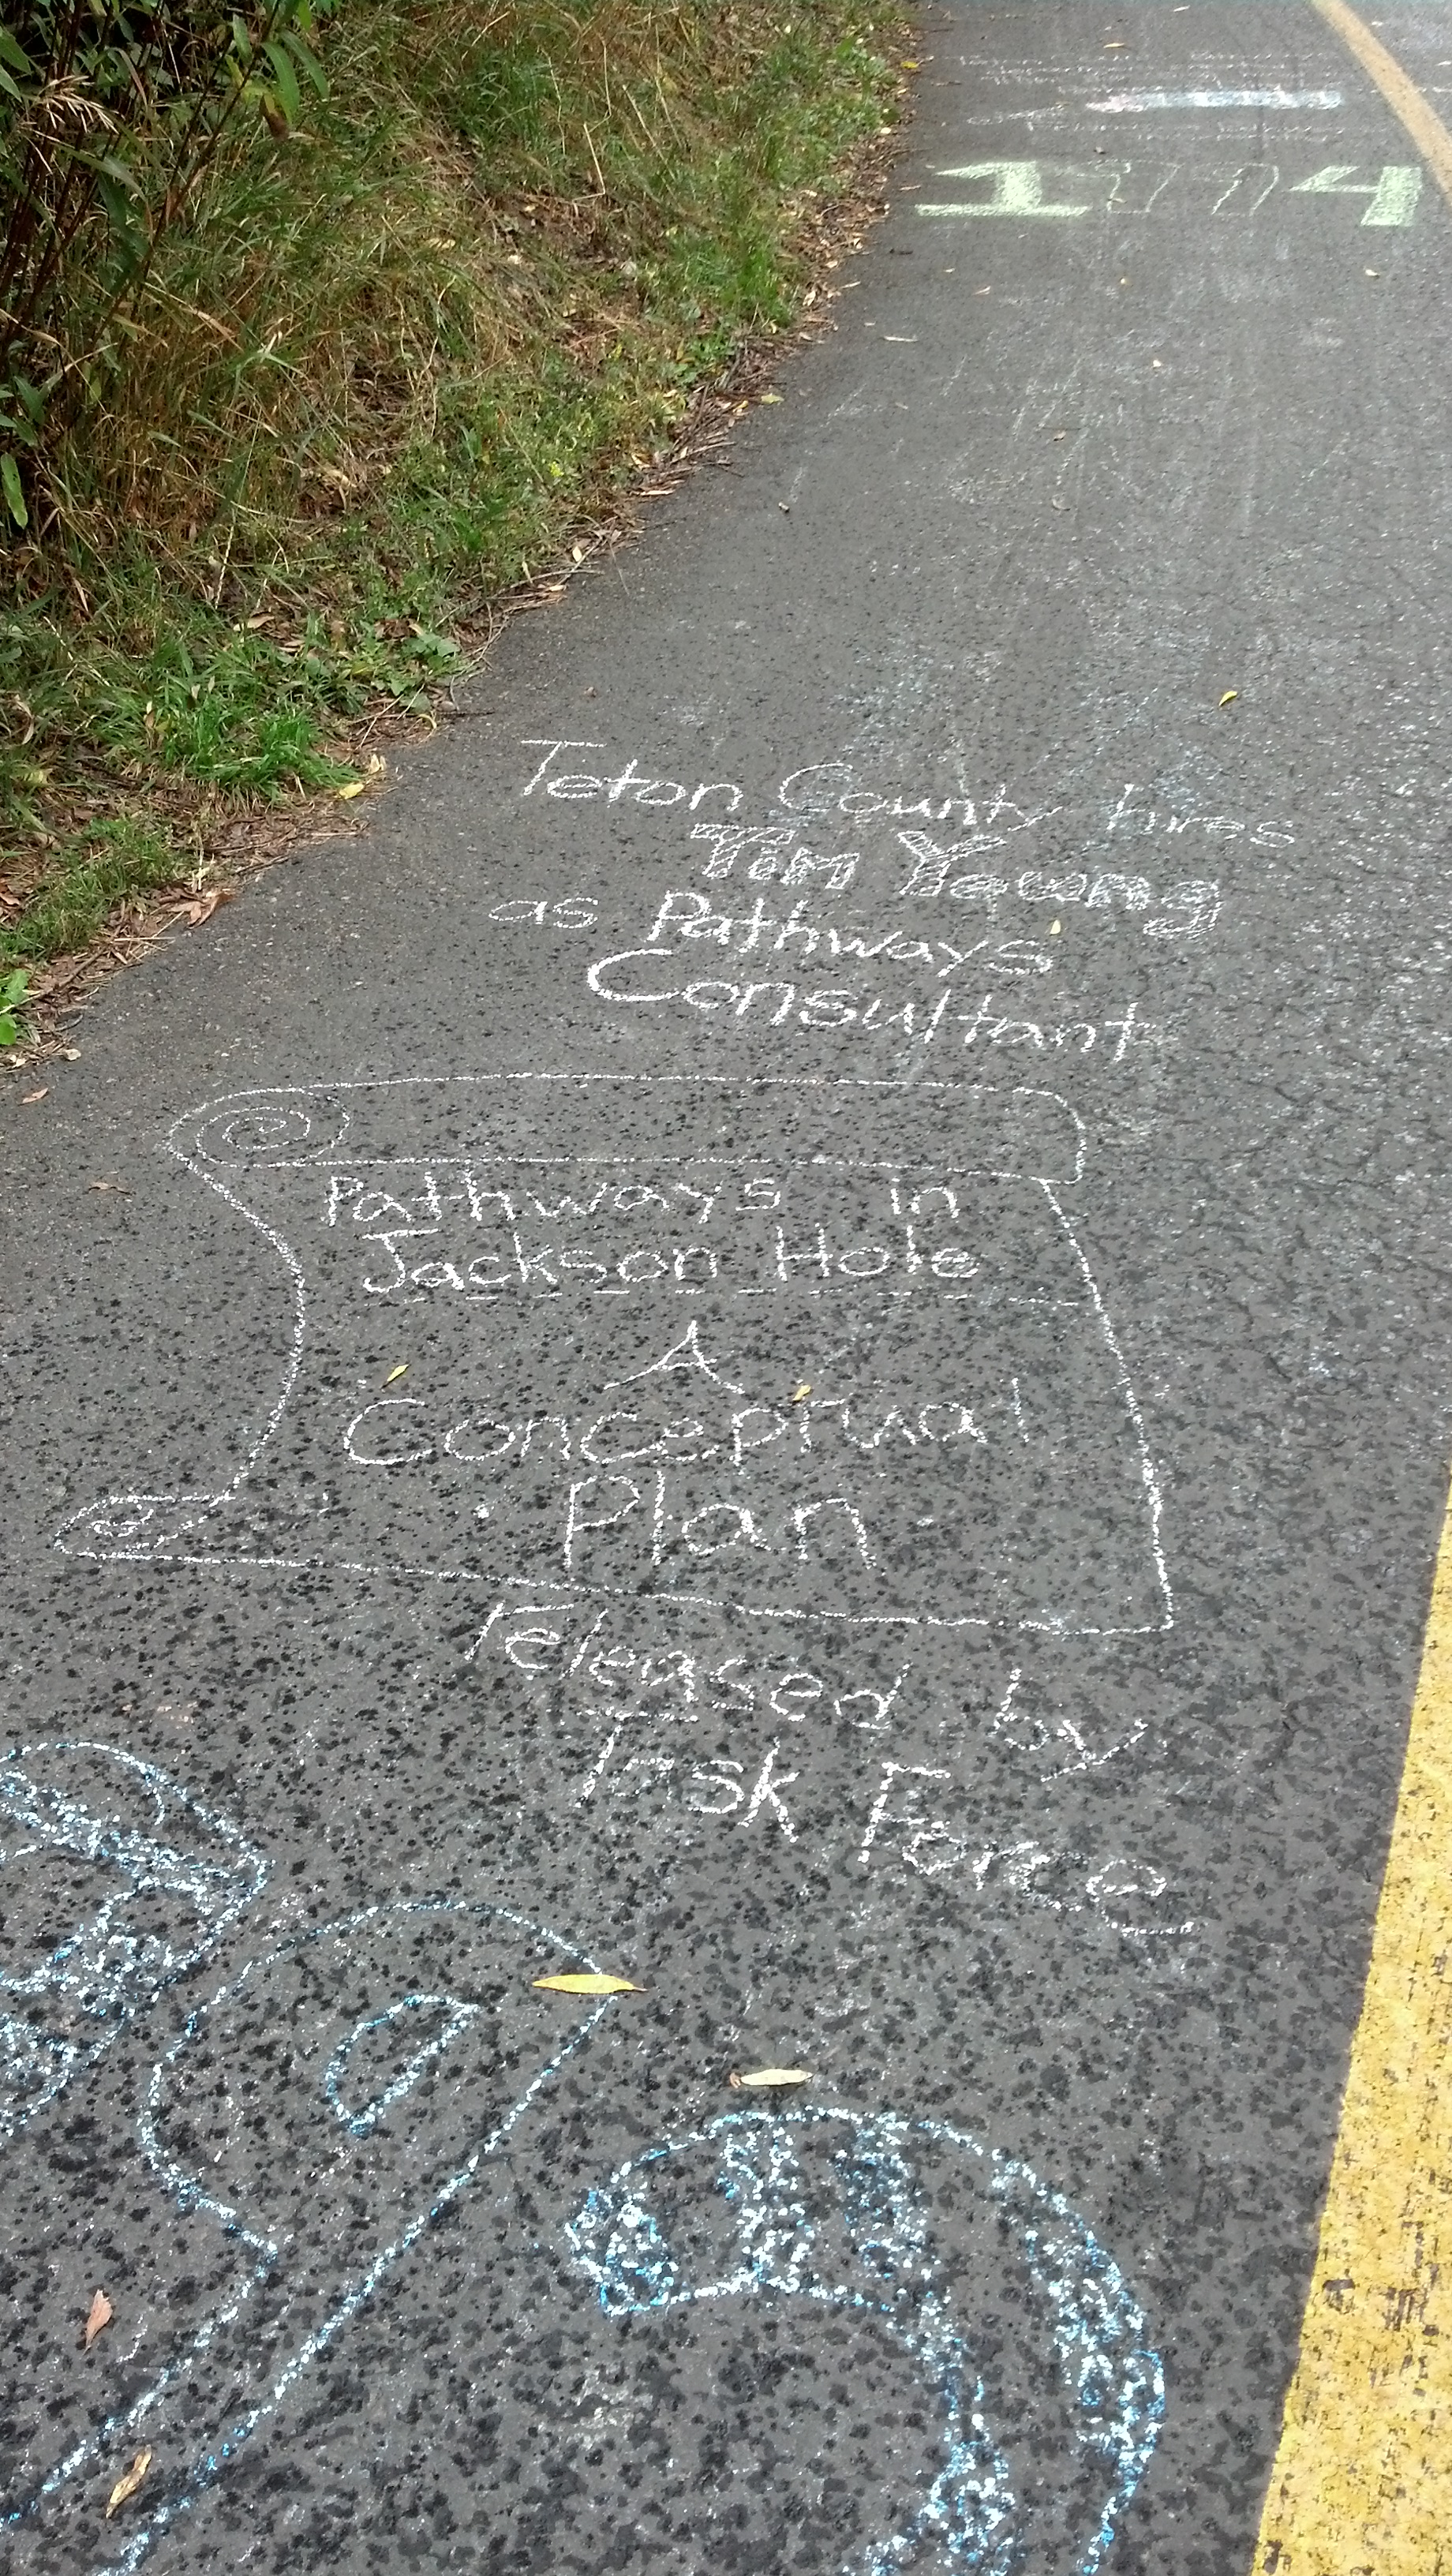 Teton County hires
Tim Young
as Pathways
Consultant
Pathways in
Jackson Hole
A
Conceptual
Plan
released by
Task Force